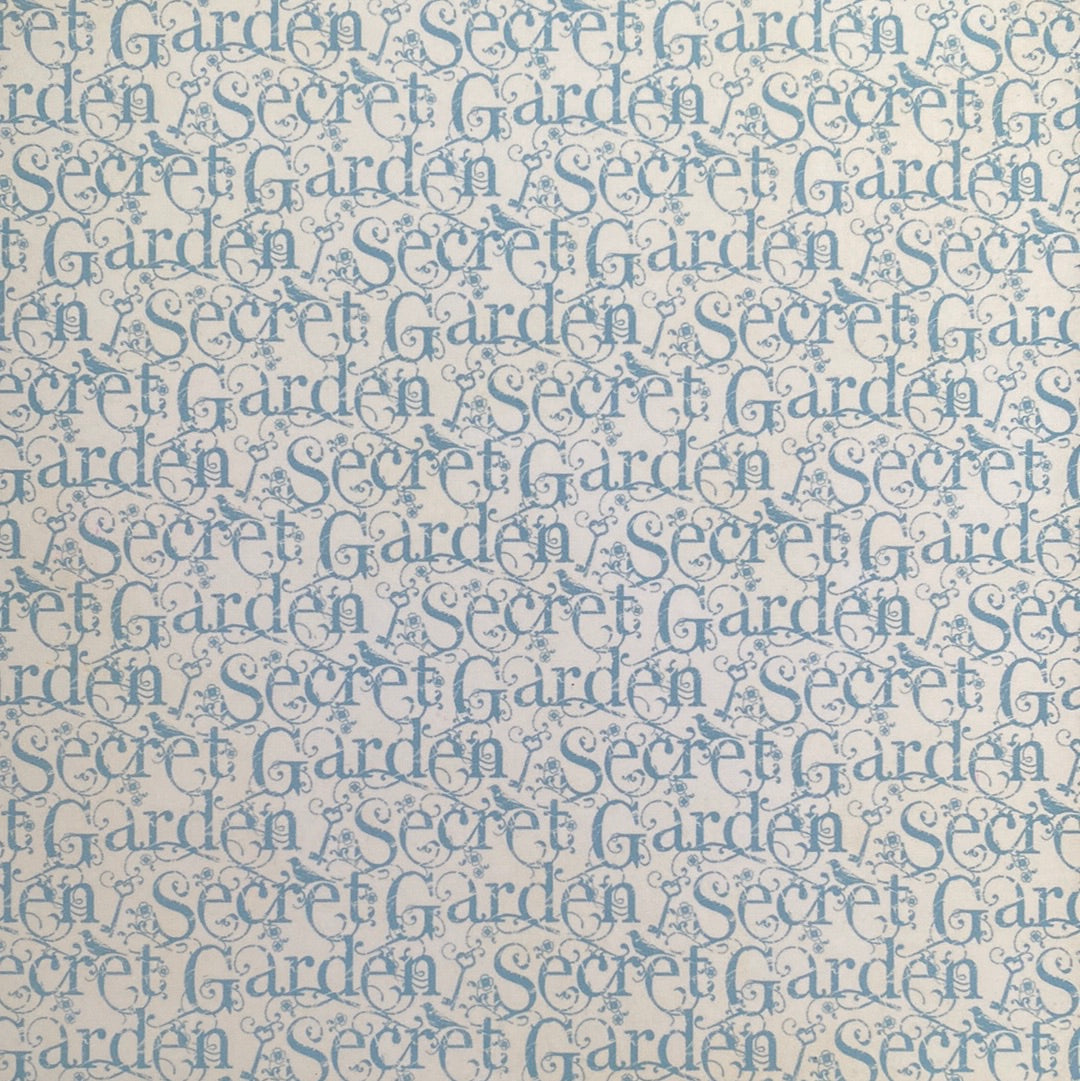 ret Garden Secret Garden Sec
rden Secret Garden Secret Ga
Secret Garden Secret Garden
t Garden Secret Garden Secret
den Secret Garden Secret Gard
ecret Garden Secret Garden S
Garden Secret Garden Secret
n Secret Garden Secret Garde
ret Garden Secret Garden Sec
rden Secret Garden Secret Ga
Secret Garden Secret Garden
t Garden Secret Garden Secre
den Secret Garden Secret Gard
ecret Garden Secret Garden S
Garden Secret Garden Secret